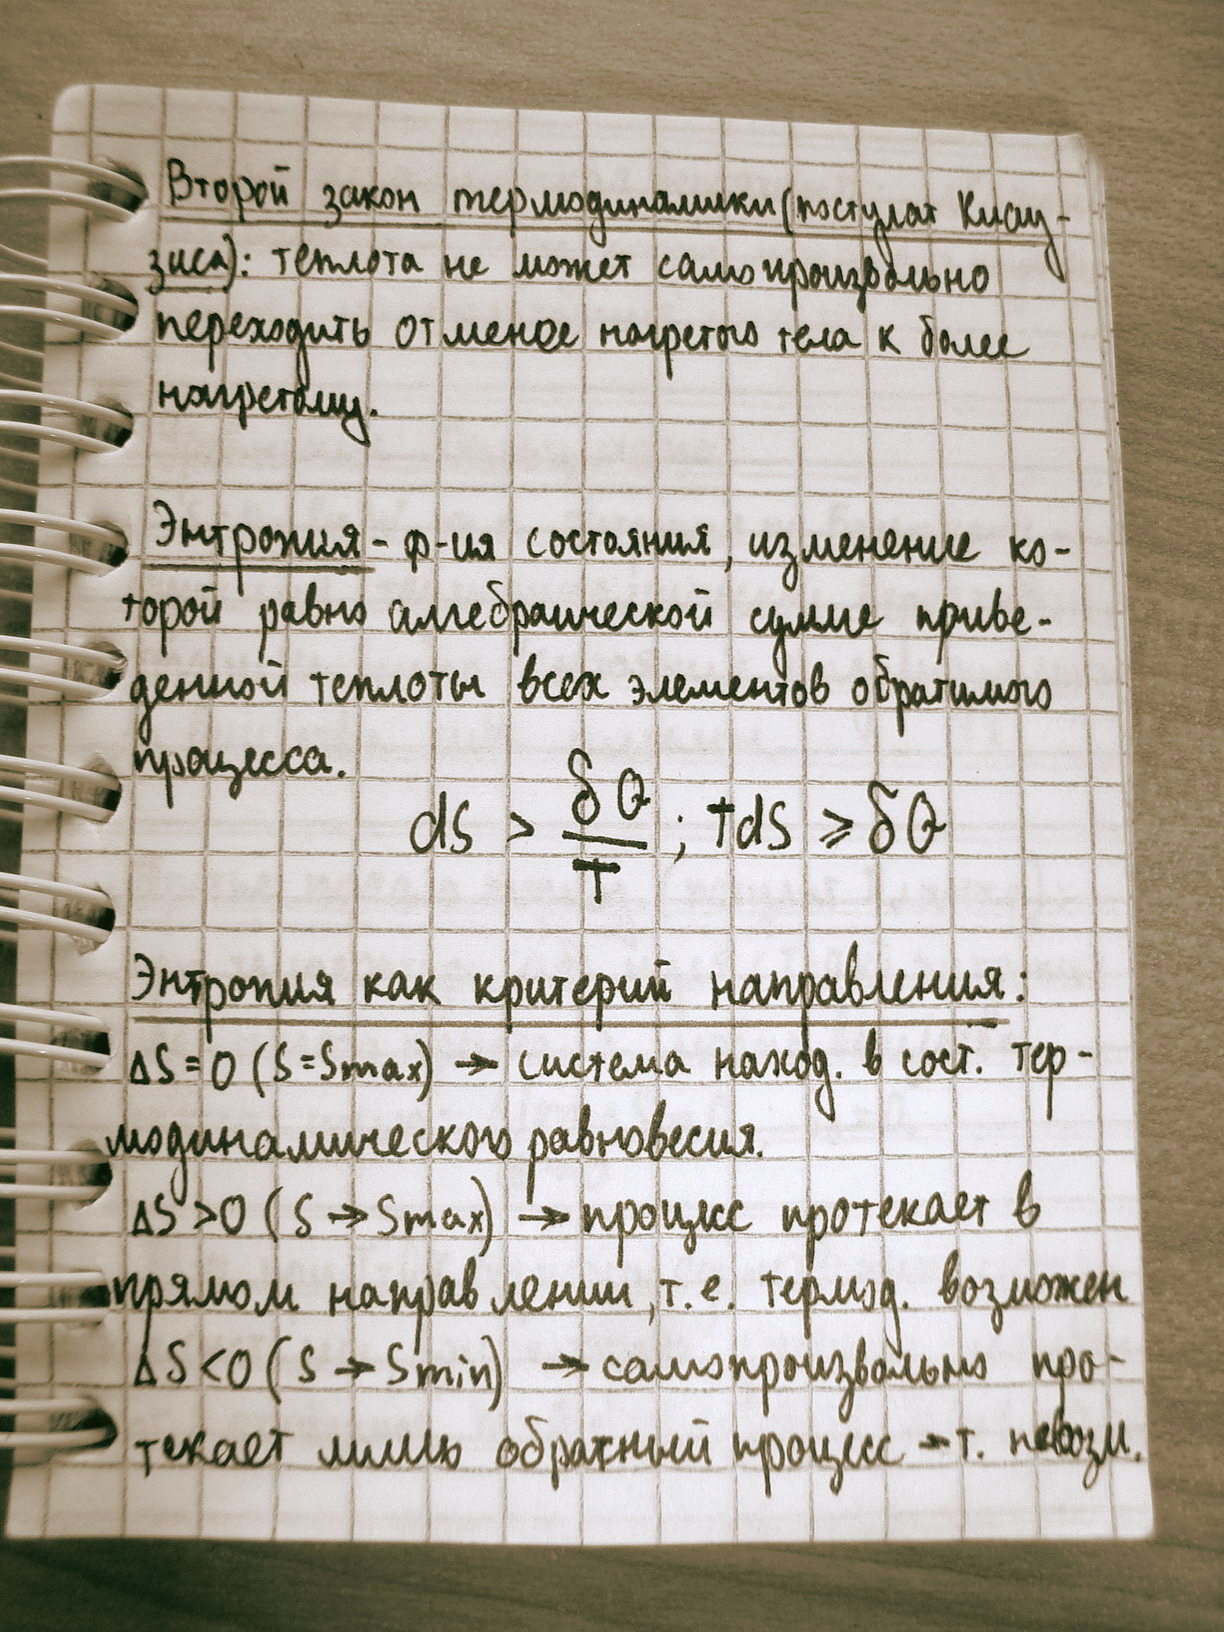 Второй закон термодинамики (постулат Клау-
зиса): теплота не может самопроизвольно
переходить от менее нагретого тела к более
нагретому.
Энтропия - ф-ия состояния, изменение ко-
торой равно алгебраической сумме приве-
денной теплоты всех элементов обратимого
процесса.
dS > δQ/T ; TdS ≥ δQ
Энтропия как критерий направления:
ΔS = 0 (S = Smax) → система наход. в сост. тер-
модинамического равновесия.
ΔS > 0 (S → Smax) → процесс протекает в
прямом направлении, т.е. термод. возможен
ΔS < 0 (S → Smin) → самопроизвольно про-
текает лишь обратный процесс → т. невозм.